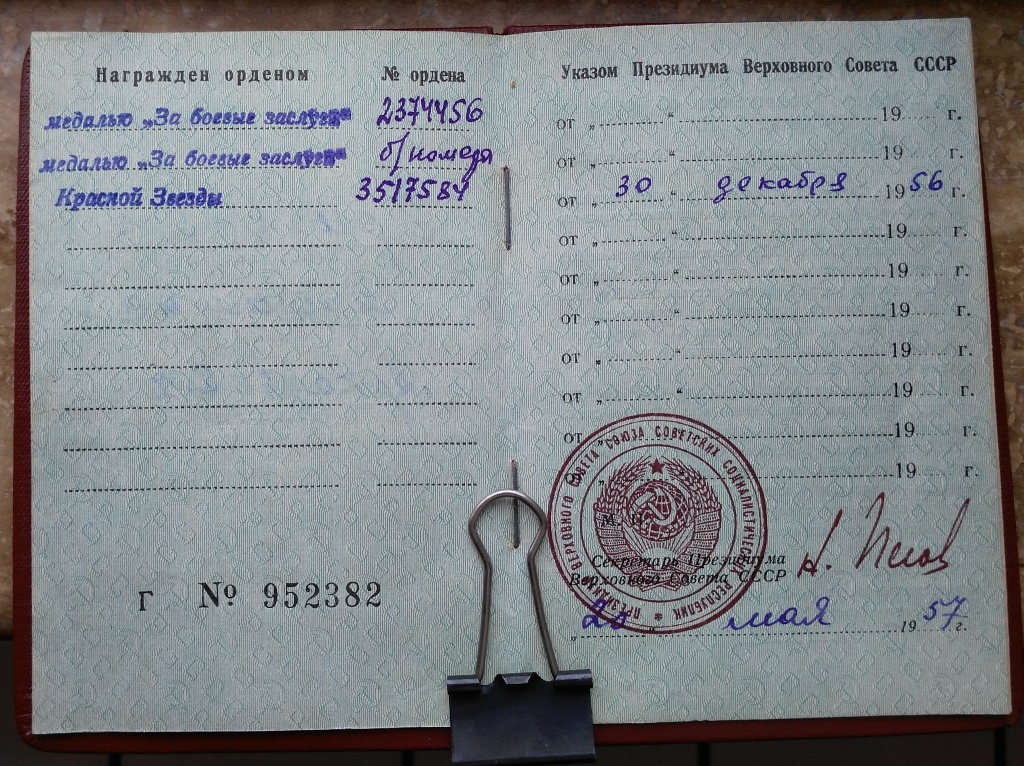 Награжден орденом № ордена
медалью „За боевые заслуги" 2374456
медалью „За боевые заслуги" б/номера
Красной Звезды 3517584
Г № 952382
Указом Президиума Верховного Совета СССР
от „ “ 19 г.
от „ “ 19 г.
от „ 30 “ декабря 1956 г.
от „ “ 19 г.
от „ “ 19 г.
от „ “ 19 г.
от „ “ 19 г.
от „ “ 19 г.
от „ “ 19 г.
„ “ 19 г.
ПРЕЗИДИУМ ВЕРХОВНОГО СОВЕТА СОЮЗА СОВЕТСКИХ СОЦИАЛИСТИЧЕСКИХ РЕСПУБЛИК
М. П.
Секретарь Президиума
Верховного Совета СССР
Н. Пегов
„ “ мая 1957 г.